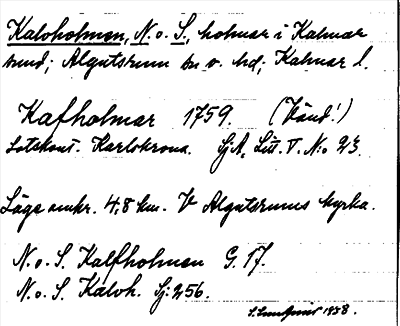 Kalvholmen, N. o. S., holmar i Kalmar
sund; Algutsrum sn o. hd; Kalmar l.
Kafholmar 1759. (Vänd!)
Lotskont. Karlskrona. SjA, Litt. V. No 23.
Läge omkr. 4,8 km. V Algutsrums kyrka.
N. o. S. Kalfholmen G. 17.
N. o. S. Kalvh. Sj: 256.
1958.